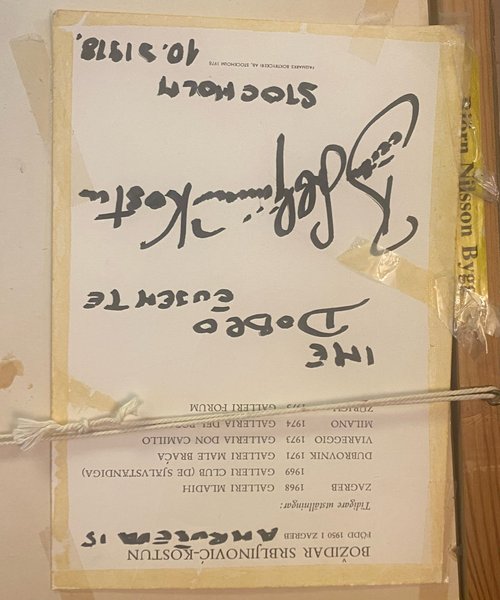 BOŽIDAR SRBLJINOVIĆ-KOSTUN
FÖDD 1950 I ZAGREB AMRUŠEVA 15
Tidigare utställningar:
ZAGREB 1968 GALLERI MLADIH
1969 GALLERI CLUB (DE SJÄLVSTÄNDIGA)
DUBROVNIK 1971 GALLERI MALE BRAĆA
VIAREGGIO 1973 GALLERIA DON CAMILLO
MILANO 1974 GALLERIA DEL
ZÜRICH 1975 GALLERI FORUM
IME
DOBRO
ČUJEM TE
Kostun
STOCHOLM
BOKTRYCKERI AB, STOCKHOLM 1978
10.3 1978.
Björn Nilsson Bygg